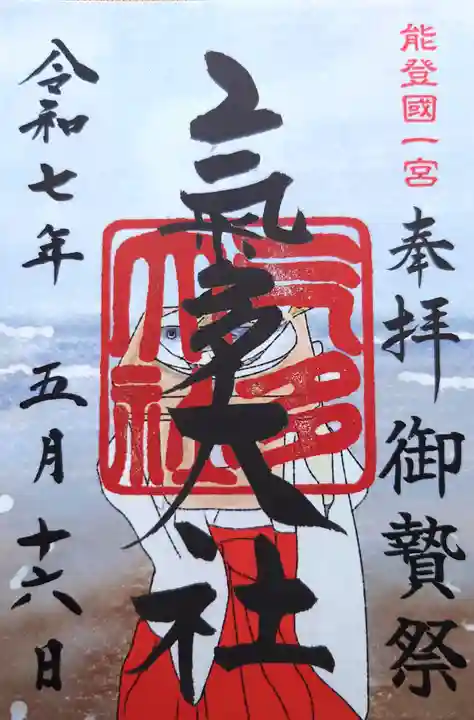 能登國一宮
奉拝御贄祭
氣多大社
气多大社
令和七年 五月十六日